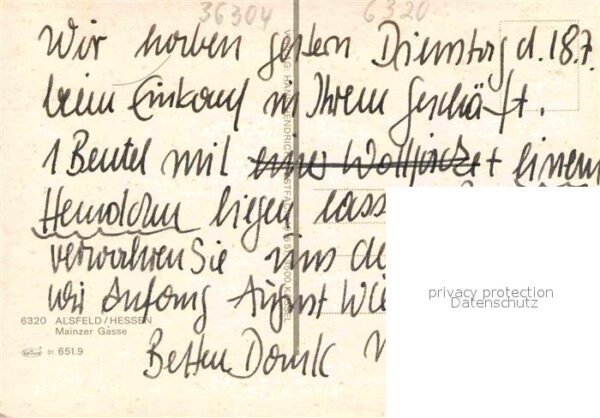 36304 6320
Wir haben gestern Dienstag d. 18.7.
beim Einkauf in Ihrem Geschäft.
1 Beutel mit einer Walljacke + einem
Hemdchen liegen lass
verwahren Sie uns de
wir Anfang August Wie
Besten Dank
6320 ALSFELD/HESSEN
Mainzer Gasse
31 651.9
privacy protection
Datenschutz